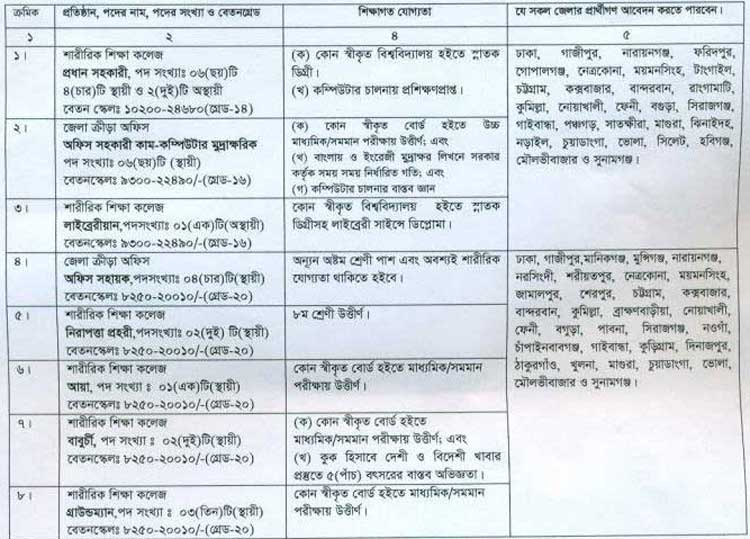 ক্রমিক
প্রতিষ্ঠান, পদের নাম, পদের সংখ্যা ও বেতনগ্রেড
শিক্ষাগত যোগ্যতা
যে সকল জেলার প্রার্থীগণ আবেদন করতে পারবেন।
১
২
৪
৫
১।
শারীরিক শিক্ষা কলেজ
প্রধান সহকারী, পদ সংখ্যাঃ ০৬(ছয়)টি
৪(চার)টি স্থায়ী ও ২(দুই)টি অস্থায়ী
বেতন স্কেলঃ ১০২০০-২৪৬৮০(গ্রেড-১৪)
(ক) কোন স্বীকৃত বিশ্ববিদ্যালয় হইতে স্নাতক
ডিগ্রী।
(খ) কম্পিউটার চালনায় প্রশিক্ষণপ্রাপ্ত।
ঢাকা, গাজীপুর, নারায়নগঞ্জ, ফরিদপুর,
গোপালগঞ্জ, নেত্রকোনা, ময়মনসিংহ, টাংগাইল,
চট্টগ্রাম, কক্সবাজার, বান্দরবান, রাংগামাটি,
কুমিল্লা, নোয়াখালী, ফেনী, বগুড়া, সিরাজগঞ্জ,
গাইবান্ধা, পঞ্চগড়, সাতক্ষীরা, মাগুরা, ঝিনাইদহ,
নড়াইল, চুয়াডাংগা, ভোলা, সিলেট, হবিগঞ্জ,
মৌলভীবাজার ও সুনামগঞ্জ।
২।
জেলা ক্রীড়া অফিস
অফিস সহকারী কাম-কম্পিউটার মুদ্রাক্ষরিক
পদ সংখ্যাঃ ০৬(ছয়)টি (স্থায়ী)
বেতনস্কেলঃ ৯৩০০-২২৪৯০/-(গ্রেড-১৬)
(ক) কোন স্বীকৃত বোর্ড হইতে উচ্চ
মাধ্যমিক/সমমান পরীক্ষায় উত্তীর্ণ; এবং
(খ) বাংলায় ও ইংরেজী মুদ্রাক্ষর লিখনে সরকার
কর্তৃক সময় সময় নির্ধারিত গতি; এবং
(গ) কম্পিউটার চালনার বাস্তব জ্ঞান
৩।
শারীরিক শিক্ষা কলেজ
লাইব্রেরীয়ান,পদসংখ্যাঃ ০১(এক)টি(অস্থায়ী)
বেতনস্কেলঃ ৯৩০০-২২৪৯০/-(গ্রেড-১৬)
কোন স্বীকৃত বিশ্ববিদ্যালয় হইতে স্নাতক
ডিগ্রীসহ লাইব্রেরী সাইন্সে ডিপ্লোমা।
৪।
জেলা ক্রীড়া অফিস
অফিস সহায়ক,পদসংখ্যাঃ ০৪(চার)টি(স্থায়ী)
বেতনস্কেলঃ ৮২৫০-২০০১০/-(গ্রেড-২০)
অন্যুন অষ্টম শ্রেণী পাশ এবং অবশ্যই শারীরিক
যোগ্যতা থাকিতে হইবে।
ঢাকা, গাজীপুর,মানিকগঞ্জ, মুন্সিগঞ্জ, নারায়নগঞ্জ,
নরসিংদী, শরীয়তপুর, নেত্রকোনা, ময়মনসিংহ,
জামালপুর, শেরপুর, চট্টগ্রাম, কক্সবাজার,
বান্দরবান, কুমিল্লা, ব্রাহ্মণবাড়ীয়া, নোয়াখালী,
ফেনী, বগুড়া, পাবনা, সিরাজগঞ্জ, নওগাঁ,
চাঁপাইনবাবগঞ্জ, গাইবান্ধা, কুড়িগ্রাম, দিনাজপুর,
ঠাকুরগাঁও, খুলনা, মাগুরা, চুয়াডাংগা, ভোলা,
মৌলভীবাজার ও সুনামগঞ্জ।
৫।
শারীরিক শিক্ষা কলেজ
নিরাপত্তা প্রহরী,পদসংখ্যাঃ ০২(দুই) টি(স্থায়ী)
বেতনস্কেলঃ ৮২৫০-২০০১০/-(গ্রেড-২০)
৮ম শ্রেণী উত্তীর্ণ।
৬।
শারীরিক শিক্ষা কলেজ
আয়া, পদ সংখ্যা ঃ ০১(এক)টি(স্থায়ী)
বেতনস্কেলঃ ৮২৫০-২০০১০/-(গ্রেড-২০)
কোন স্বীকৃত বোর্ড হইতে মাধ্যমিক/সমমান
পরীক্ষায় উত্তীর্ণ।
৭।
শারীরিক শিক্ষা কলেজ
বাবুর্চী, পদ সংখ্যা ঃ ০২(দুই)টি(স্থায়ী)
বেতনস্কেলঃ ৮২৫০-২০০১০/-(গ্রেড-২০)
(ক) কোন স্বীকৃত বোর্ড হইতে
মাধ্যমিক/সমমান পরীক্ষায় উত্তীর্ণ; এবং
(খ) কুক হিসাবে দেশী ও বিদেশী খাবার
প্রস্তুতে ৫(পাঁচ) বৎসরের বাস্তব অভিজ্ঞতা।
৮।
শারীরিক শিক্ষা কলেজ
গ্রাউন্ডম্যান,পদ সংখ্যাঃ ০৩(তিন)টি(স্থায়ী)
বেতনস্কেলঃ ৮২৫০-২০০১০/-(গ্রেড-২০)
কোন স্বীকৃত বোর্ড হইতে মাধ্যমিক/সমমান
পরীক্ষায় উত্তীর্ণ।